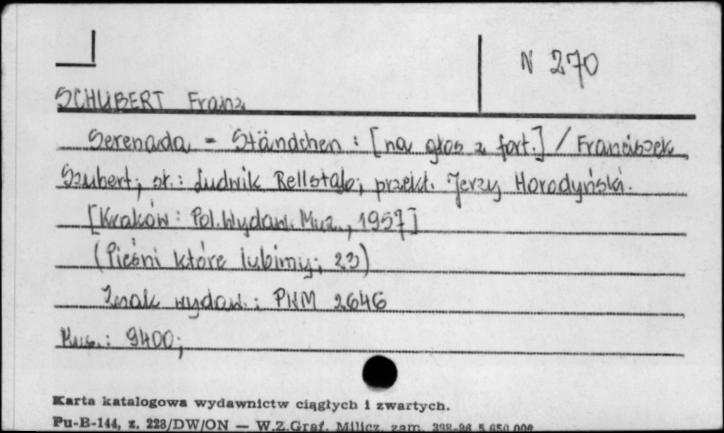 N 270
SCHUBERT Franz
Serenada = Ständchen : [na głos z fort.] / Franciszek
Szubert; sł.: Ludwik Rellstab; przekł. Jerzy Horodyński.
[Kraków : Pol. Wydaw. Muz., 1957]
(Pieśni które lubimy; 23)
Znak wydaw.: PWM 2646
Mus.: 9400;
Karta katalogowa wydawnictw ciągłych i zwartych.
Pu-B-144, z. 228/DW/ON — W.Z.Graf. Milicz, zam. 398-86 5.650.000